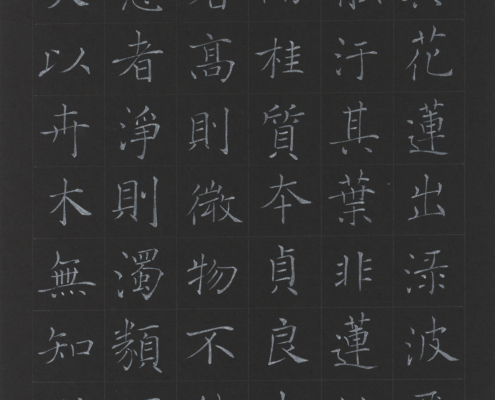 花蓮出淥波
汙其葉非蓮
桂質本貞良
髙則微物不
者淨則濁類
以卉木無知